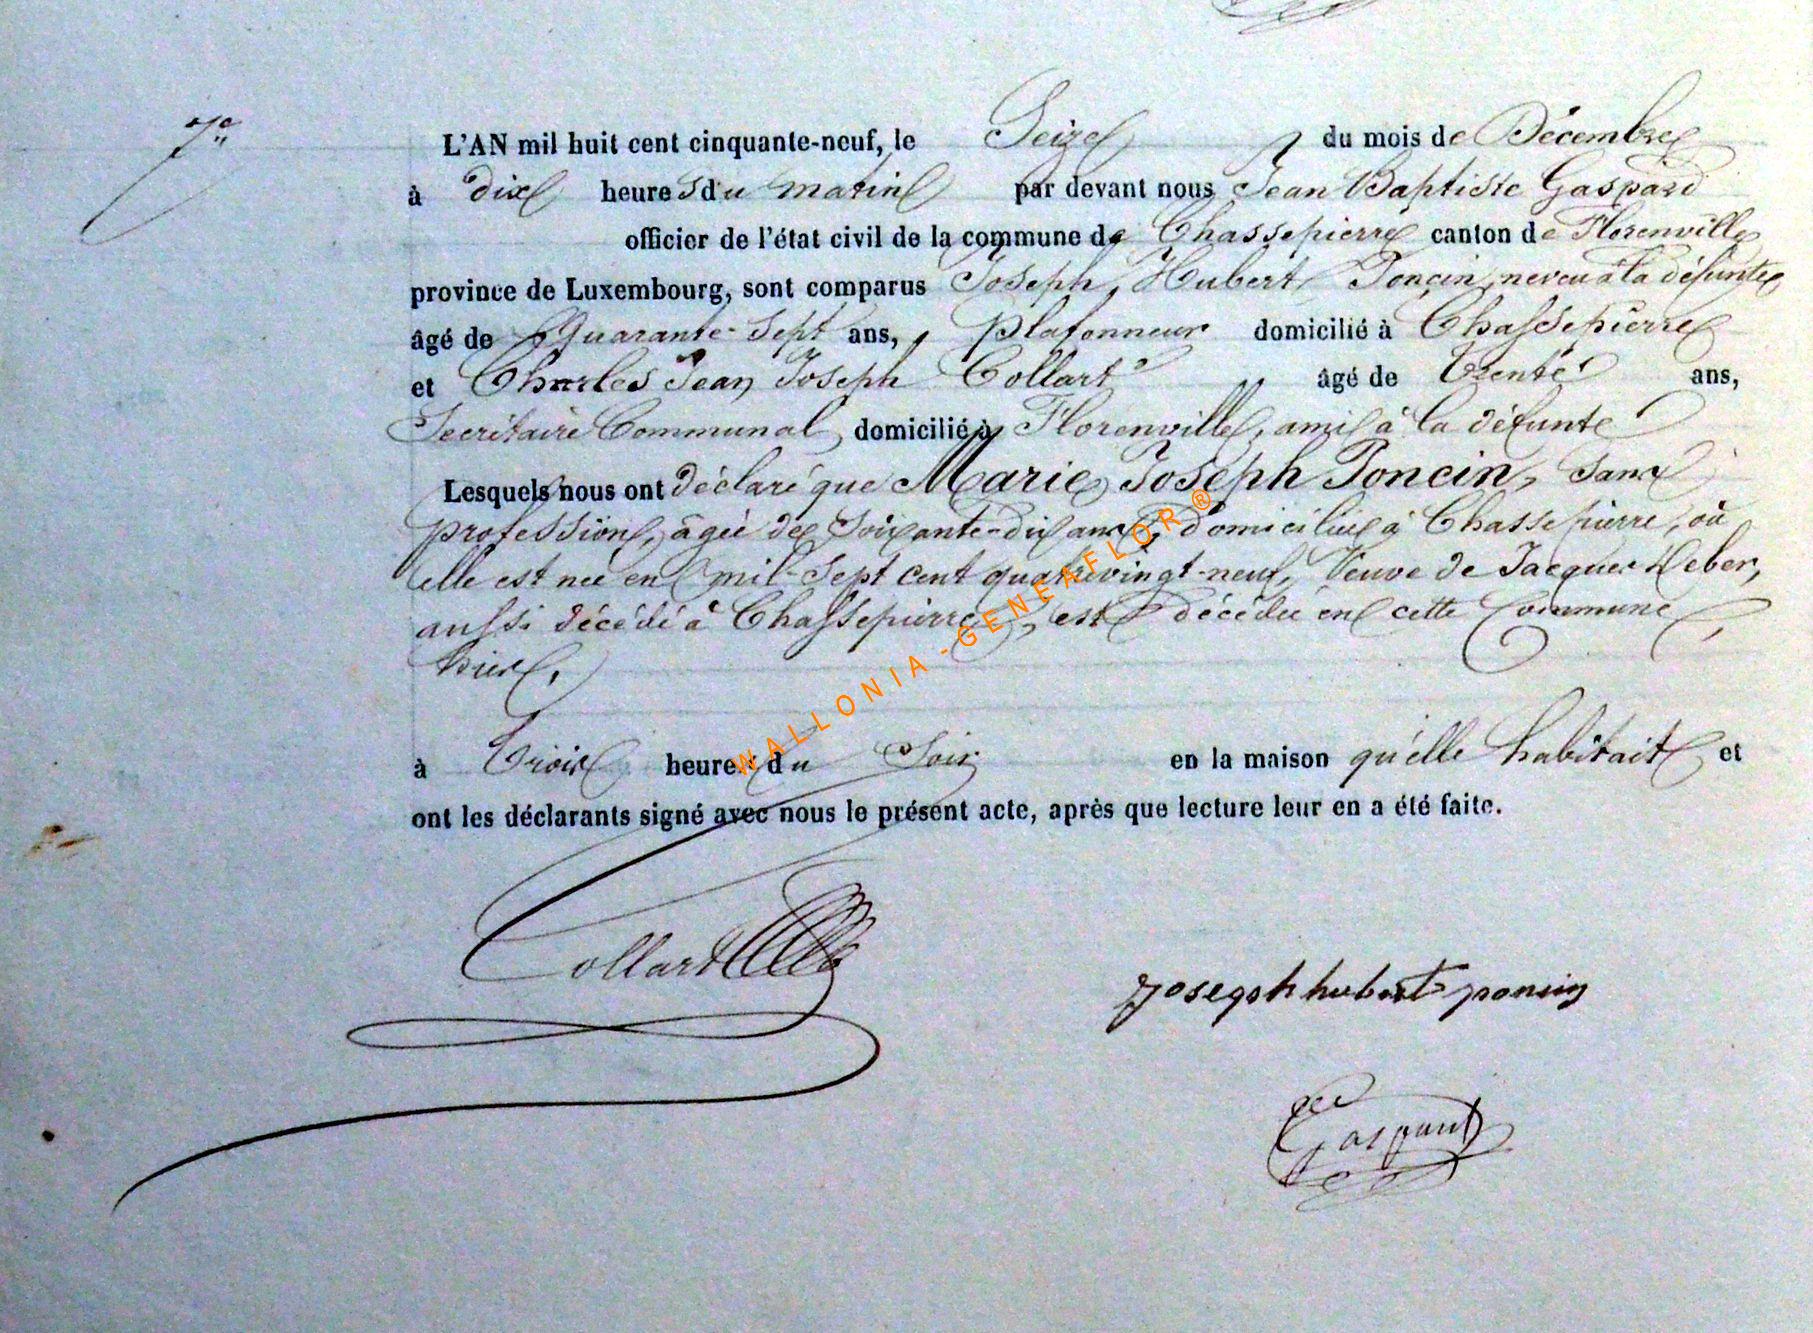 7e
L'AN mil huit cent cinquante-neuf, le Seize du mois de Décembre
à dix heures du matin par devant nous Jean Baptiste Gaspard
officier de l'état civil de la commune de Chassepierre canton de Florenville
province de Luxembourg, sont comparus Joseph Hubert Poncin, neveu à la défunte
âgé de Quarante-Sept ans, plafonneur domicilié à Chassepierre
et Charles Jean Joseph Collart âgé de Trente ans,
Secrétaire Communal domicilié à Florenville, ami à la défunte
Lesquels nous ont déclaré que Marie Joseph Poncin, Sans
profession, âgée de Soixante-dix ans, domiciliée à Chassepierre, où
elle est née en mil-Sept cent quatrevingt-neuf, Veuve de Jacques Heber,
aussi décédé à Chassepierre, est décédée en cette Commune,
hier,
à Trois heures du Soir en la maison qu'elle habitait et
ont les déclarants signé avec nous le présent acte, après que lecture leur en a été faite.
Collart
joseph hubert poncin
Gaspard
WALLONIA-GENEAFLOR®